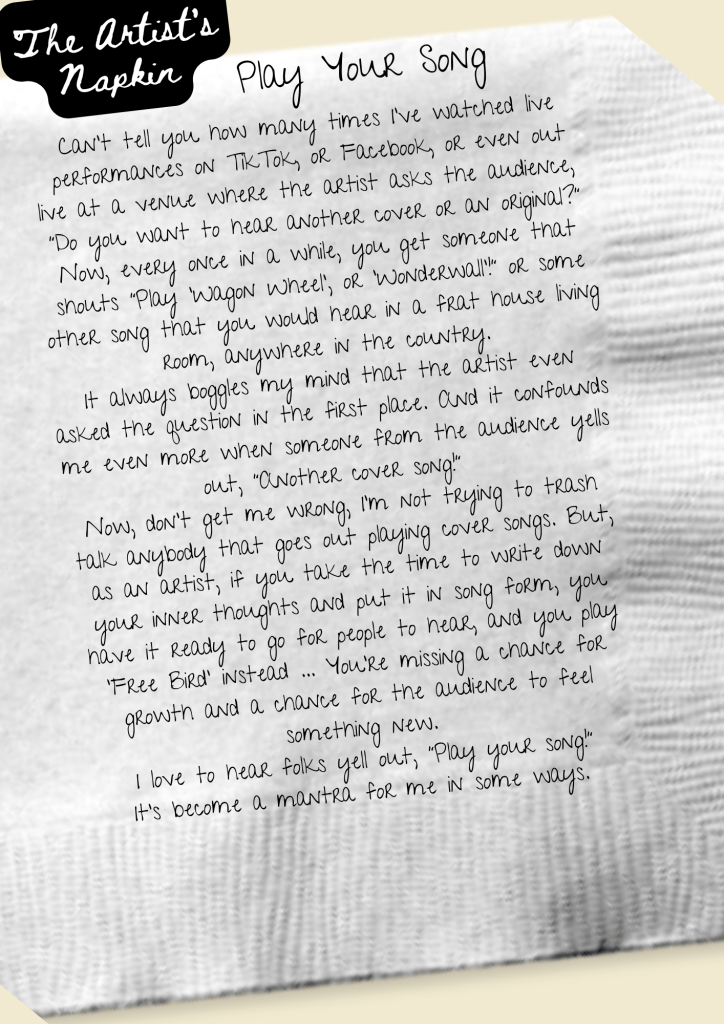 The Artist's
Napkin
Play Your Song
Can't tell you how many times I've watched live
performances on TikTok, or Facebook, or even out
live at a venue where the artist asks the audience,
"Do you want to hear another cover or an original?"
Now, every once in a while, you get someone that
shouts "Play 'Wagon Wheel', or 'Wonderwall'!" or some
other song that you would hear in a frat house living
room, anywhere in the country.
It always boggles my mind that the artist even
asked the question in the first place. And it confounds
me even more when someone from the audience yells
out, "Another cover song!"
Now, don't get me wrong, I'm not trying to trash
talk anybody that goes out playing cover songs. But,
as an artist, if you take the time to write down
your inner thoughts and put it in song form, you
have it ready to go for people to hear, and you play
'Free Bird' instead ... You're missing a chance for
growth and a chance for the audience to feel
something new.
I love to hear folks yell out, "Play your song!"
It's become a mantra for me in some ways.